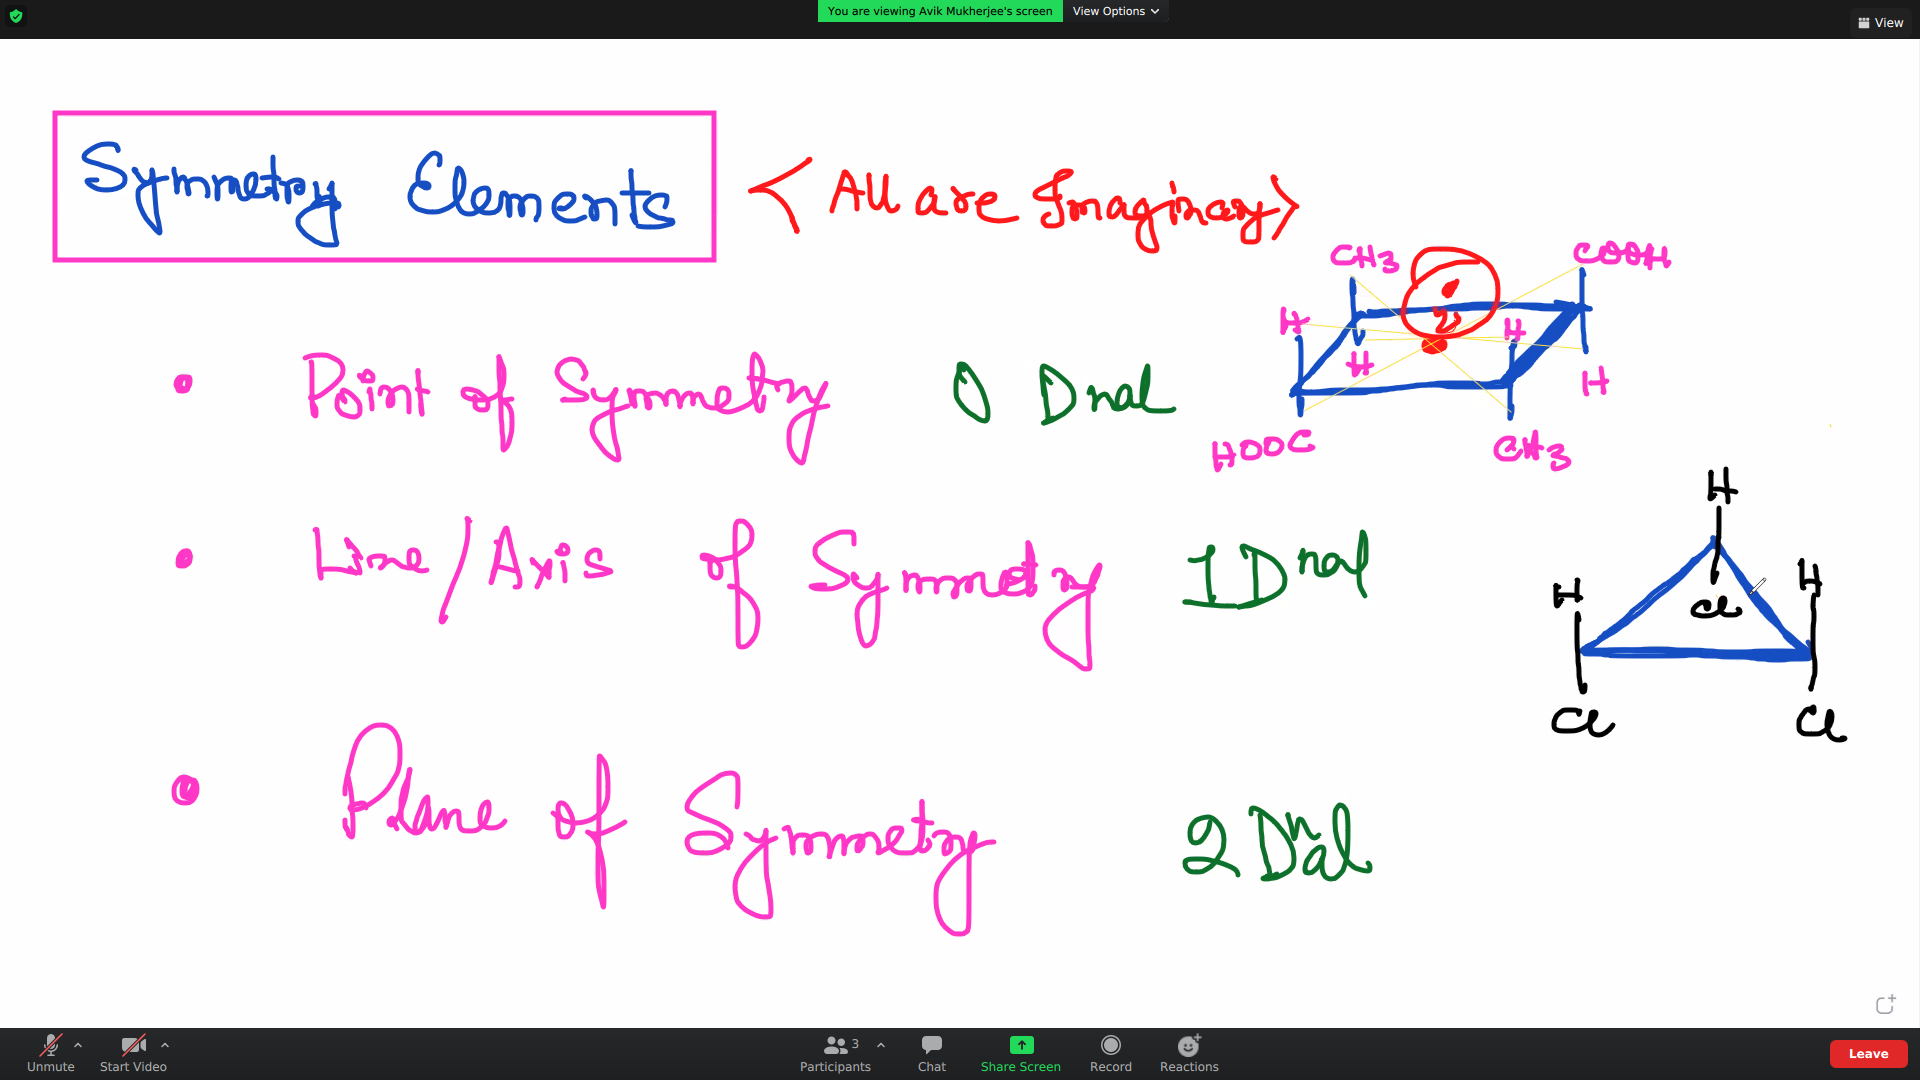 You are viewing Avik Mukherjee's screen View Options
View
Symmetry Elements < All are Imaginary >
CH3 COOH
H H
H H
HOOC CH3
Point of Symmetry 0 Dnal
Line/Axis of Symmetry 1 Dnal
H
H H
Cl
Cl Cl
Plane of Symmetry 2 Dnal
Unmute Start Video Participants 3 Chat Share Screen Record Reactions Leave